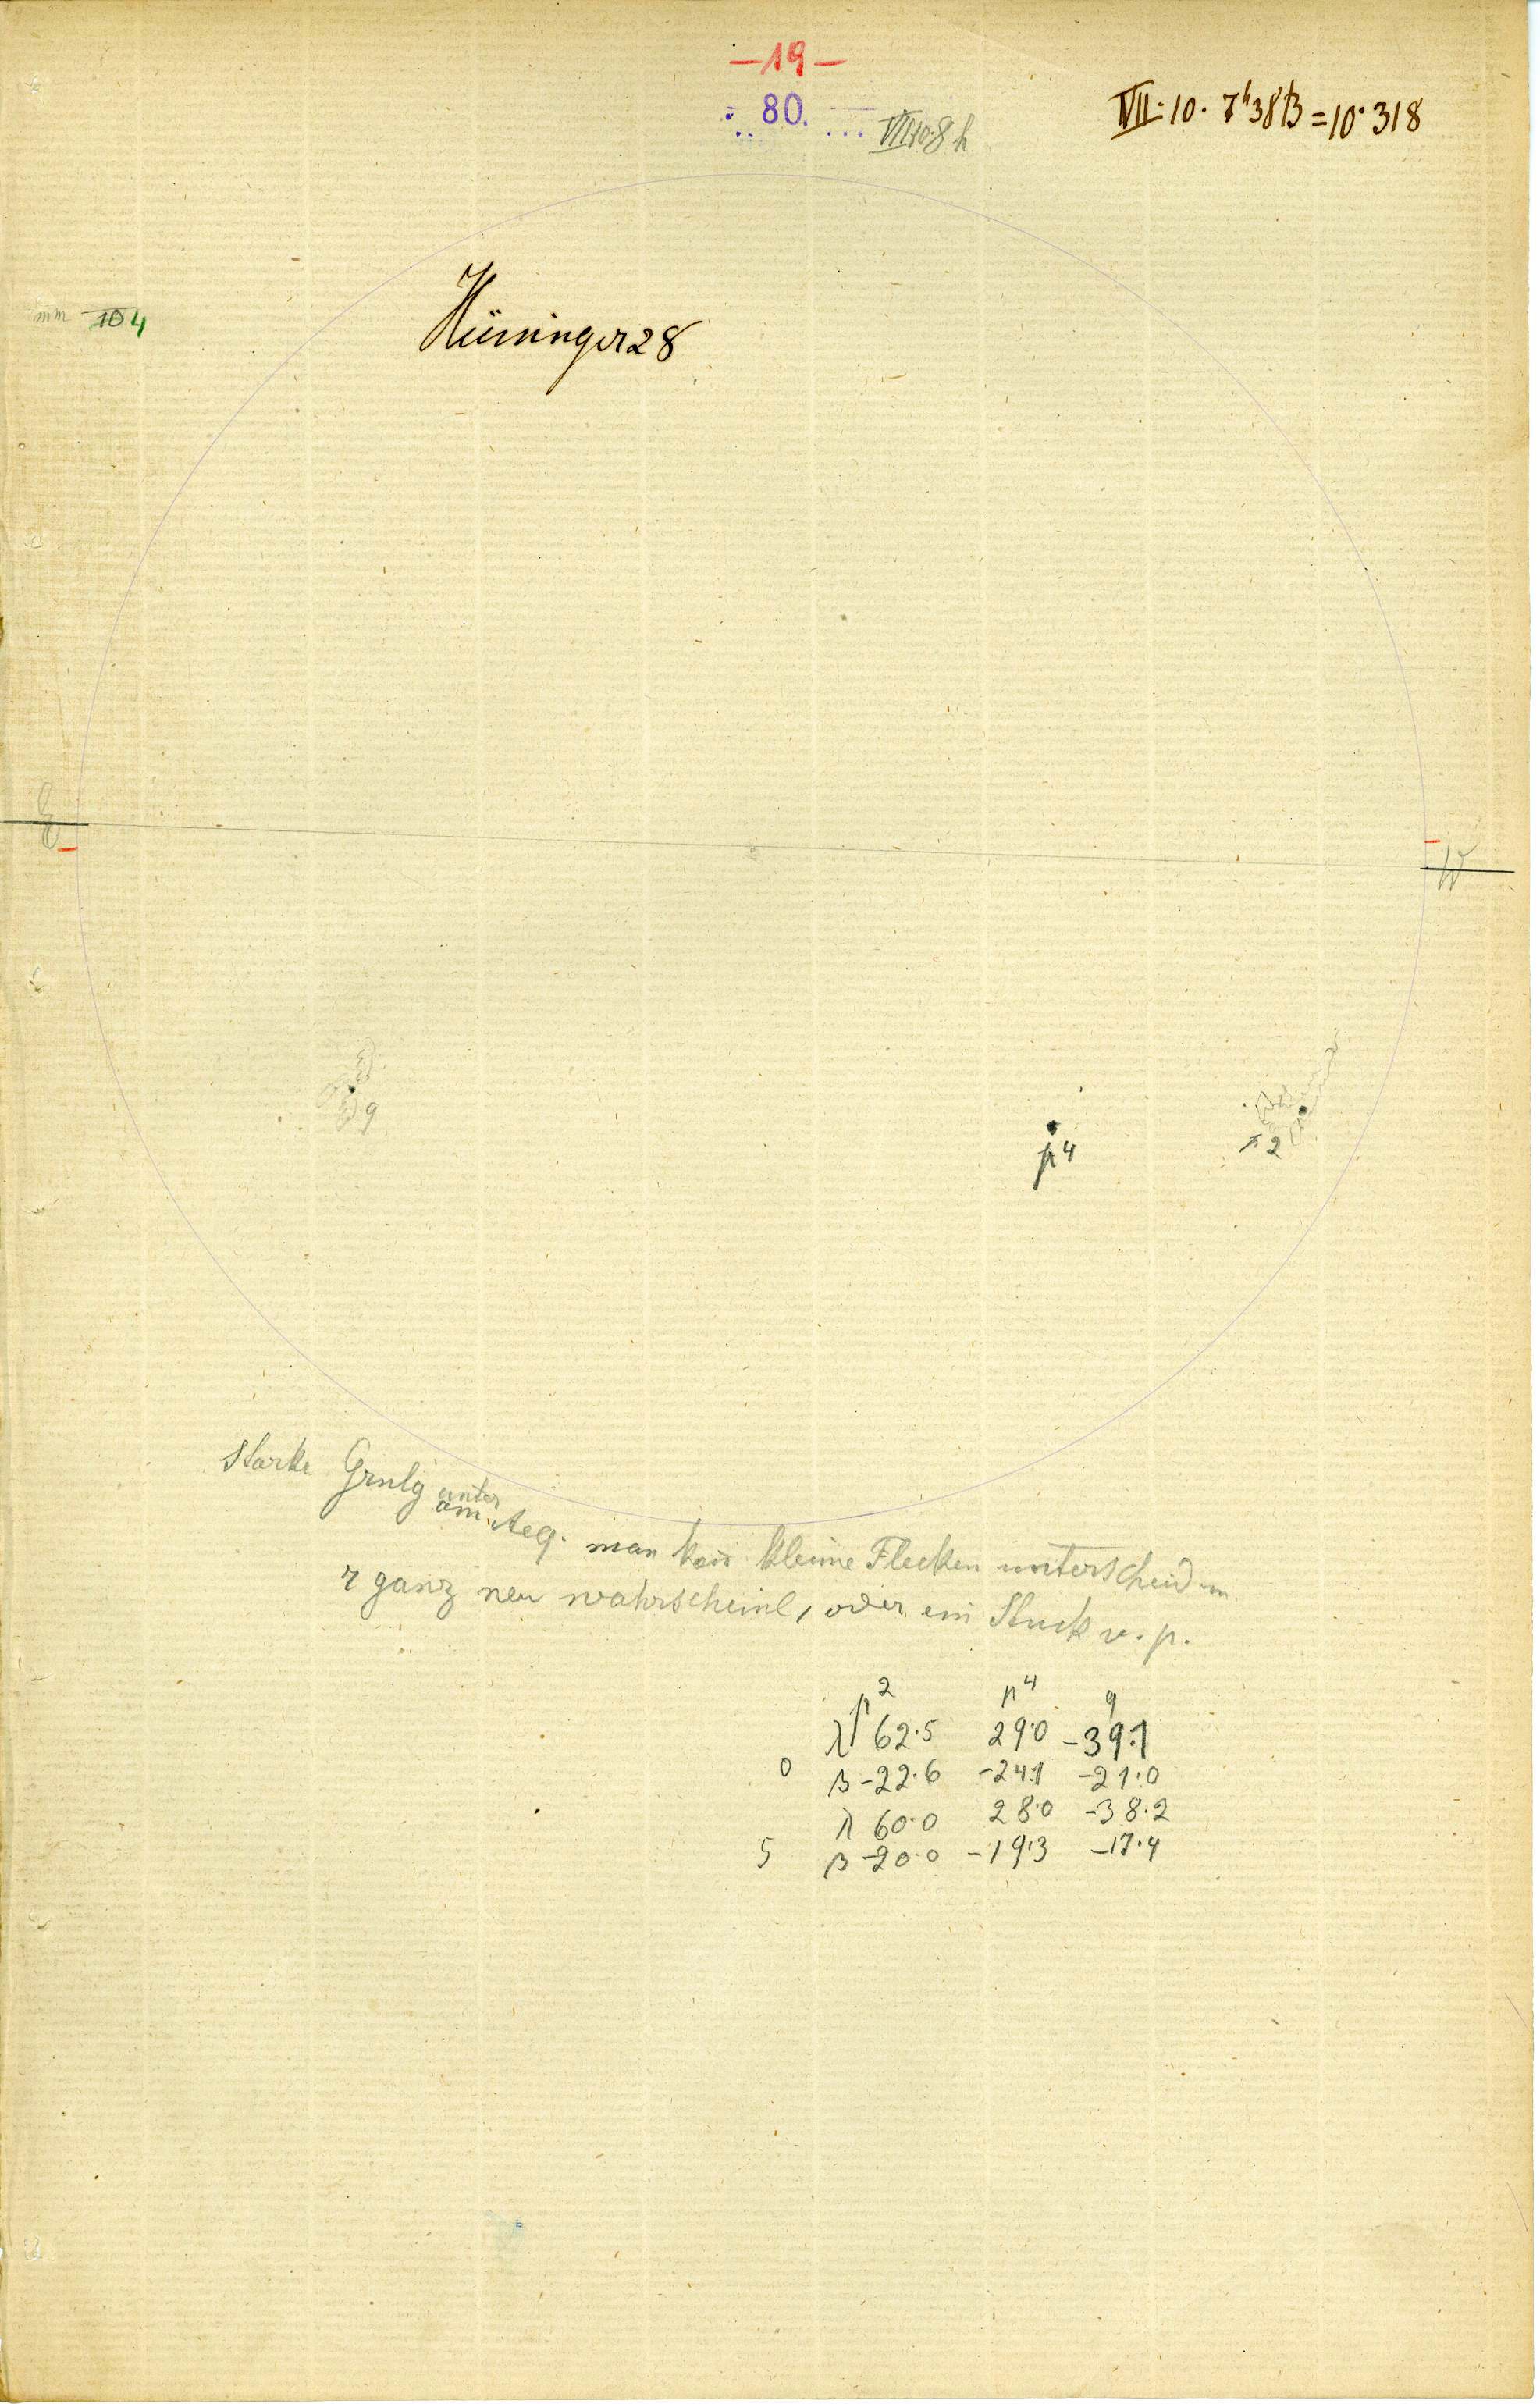 —19—
80.
VII 10. 8 h
VII. 10. 7h38 = 10. 318
mm 104
Hüninger 28
E
W
q
p4
p2
Starke Grnlg unter
am Aeq. man kan kleine Flecken unterscheiden
r ganz neu wahrscheinl, oder ein Stuck v. p.
p2 p4 q
λ 62.5 29.0 -39.1
0 β -22.6 -24.1 -21.0
λ 60.0 28.0 -38.2
5 β -20.0 -19.3 -17.4